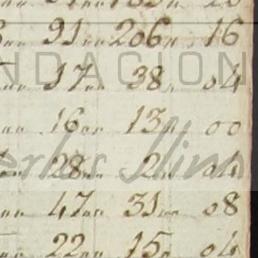 91 206 16
NDACION
17 38 04
16 13 00
28 2 04
47 31 08
22 15 04